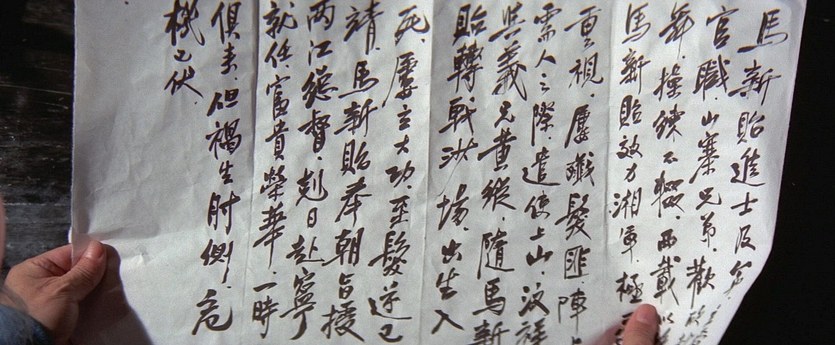 馬新貽進士及第
官職、山寨兄弟、歡
舞、操練不輟、兩載以
馬新貽效力湘軍、極
重視、屢殲髮匪、陣
需人之際、遣使上山、汶祥
與義兄黃縱、隨馬新
貽轉戰沙場、出生入
死、屢立大功、至髮逆已
靖、馬新貽奉朝旨授
两江總督、剋日赴寧
就任富貴榮華、一時
俱来、但禍生肘側、危
機已伏